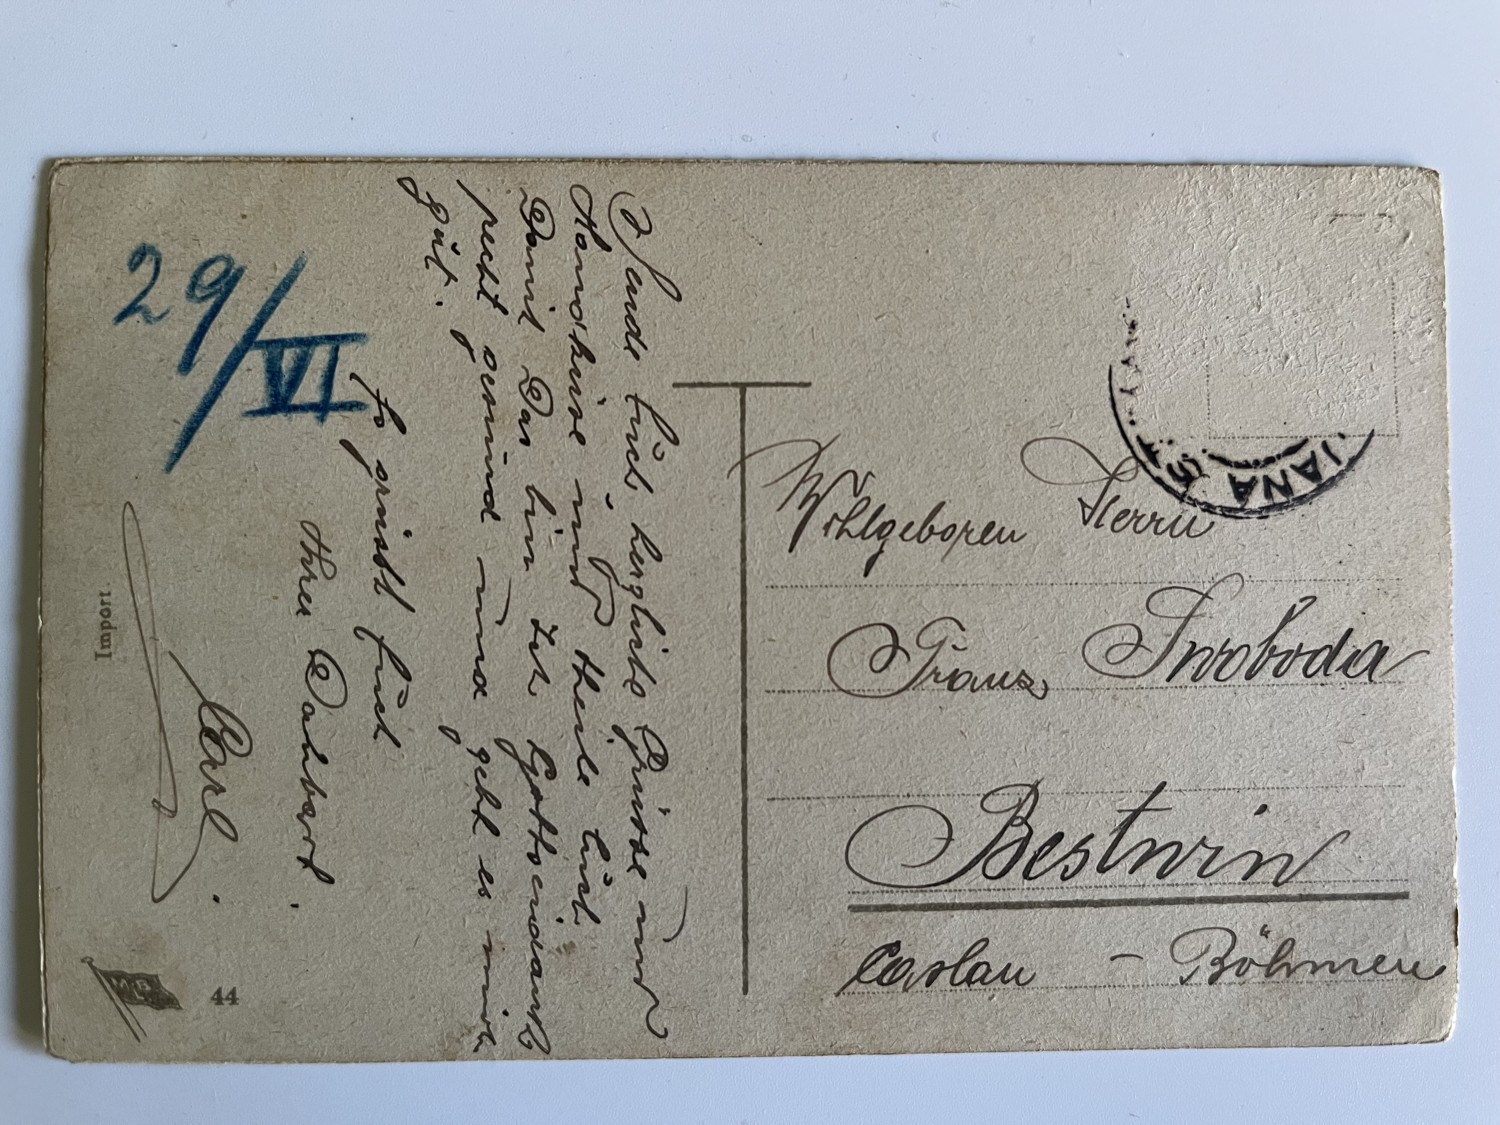 29/VI
Sende Euch herzliche Grüsse und
Handküsse und theile Euch
Damit Das bin Ich Gottseidank
recht gesund und geht es mir
gut.
So grüsst Euch
Ihrer Dankbarer
Carl.
Import.
44
Wohlgeboren Herrn
Franz Swoboda
Bestwin
Caslau – Böhmen
JANA